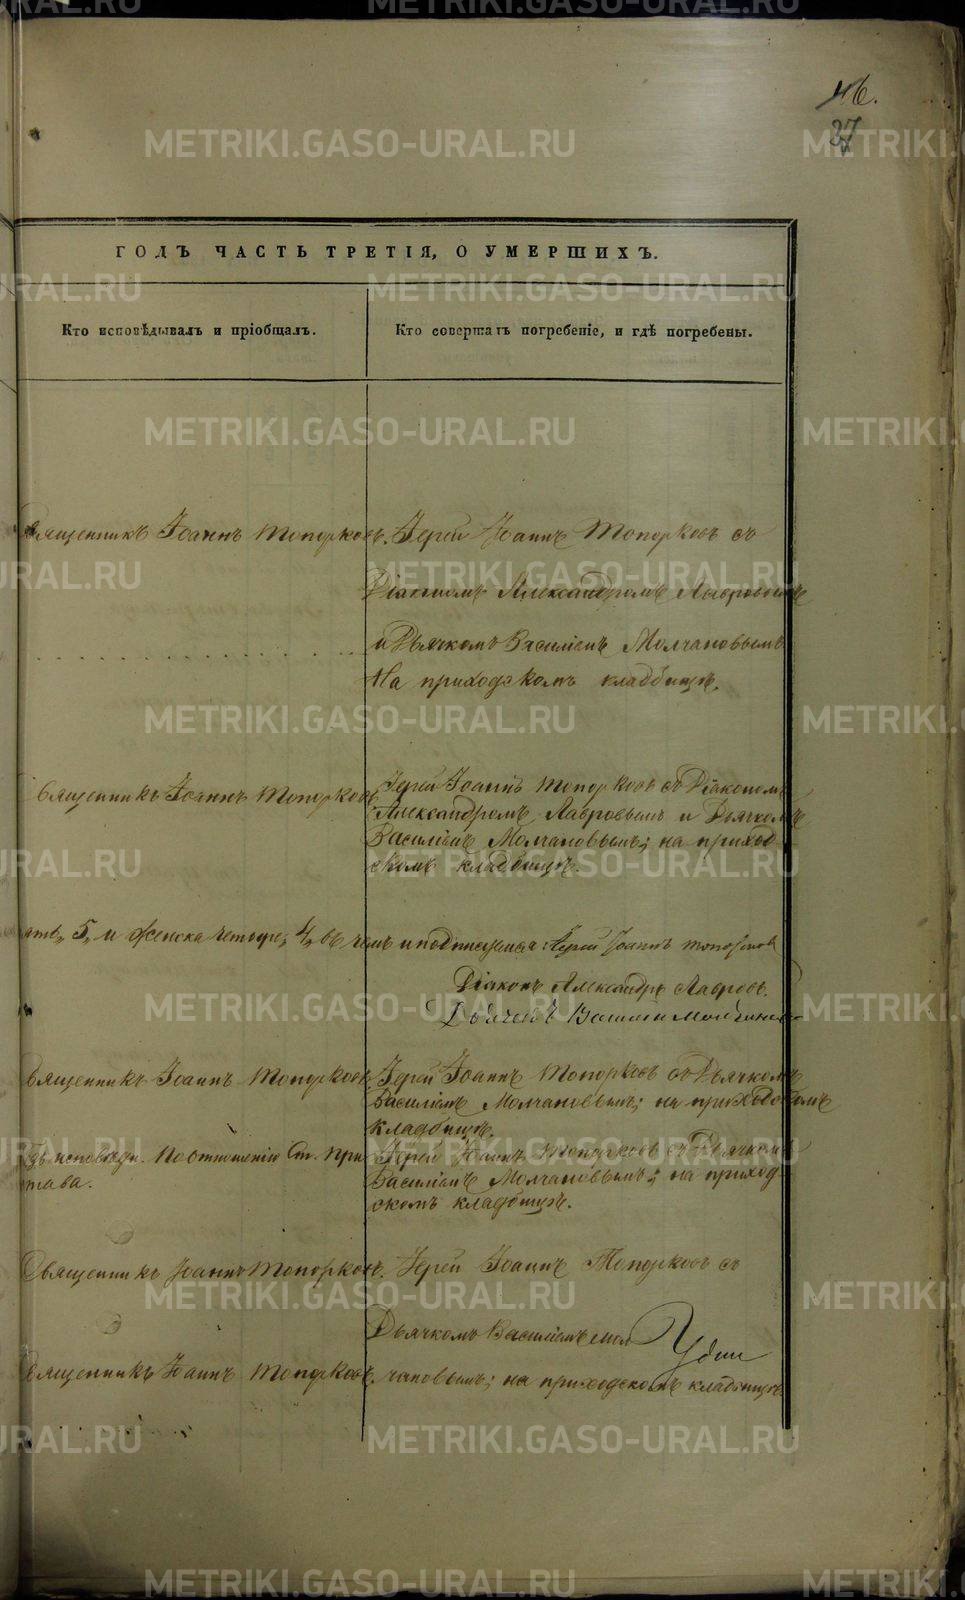 46.
37
ГОДЪ ЧАСТЬ ТРЕТІЯ, О УМЕРШИХЪ.
Кто исповѣдывалъ и пріобщалъ.
Кто совершалъ погребеніе, и гдѣ погребены.
Священникъ Іоаннъ Топорковъ.
Іерей Іоаннъ Топорковъ съ
Діакономъ Александромъ Лавровымъ
и Дьячкомъ Василіемъ Молчановымъ
На приходскомъ кладбищѣ.
Священникъ Іоаннъ Топорковъ
Іерей Іоаннъ Топорковъ съ Діакономъ
Александромъ Лавровымъ и Дьячкомъ
Василіемъ Молчановымъ; на приход
скомъ кладбищѣ.
ять, 5, и женска четыре, 4, въ чемъ и подписуемся: Іерей Іоаннъ Топорковъ
Діаконъ Александръ Лавровъ.
Дьячекъ Василий Молчановъ
Священникъ Іоаннъ Топорковъ
Іерей Іоаннъ Топорковъ съ Дьячкомъ
Василіемъ Молчановымъ; на приходскомъ
кладбищѣ.
Безъ исповѣди. По отношенію Ст. При
става.
Іерей Іоаннъ Топорковъ съ Дьячкомъ
Василіемъ Молчановымъ; на приход
скомъ кладбищѣ.
Священникъ Іоаннъ Топорковъ.
Іерей Іоаннъ Топорковъ съ
Дьячкомъ Василіемъ Мол
Священникъ Іоаннъ Топорковъ.
чановымъ; на приходскомъ кладбищѣ
METRIKI.GASO-URAL.RU